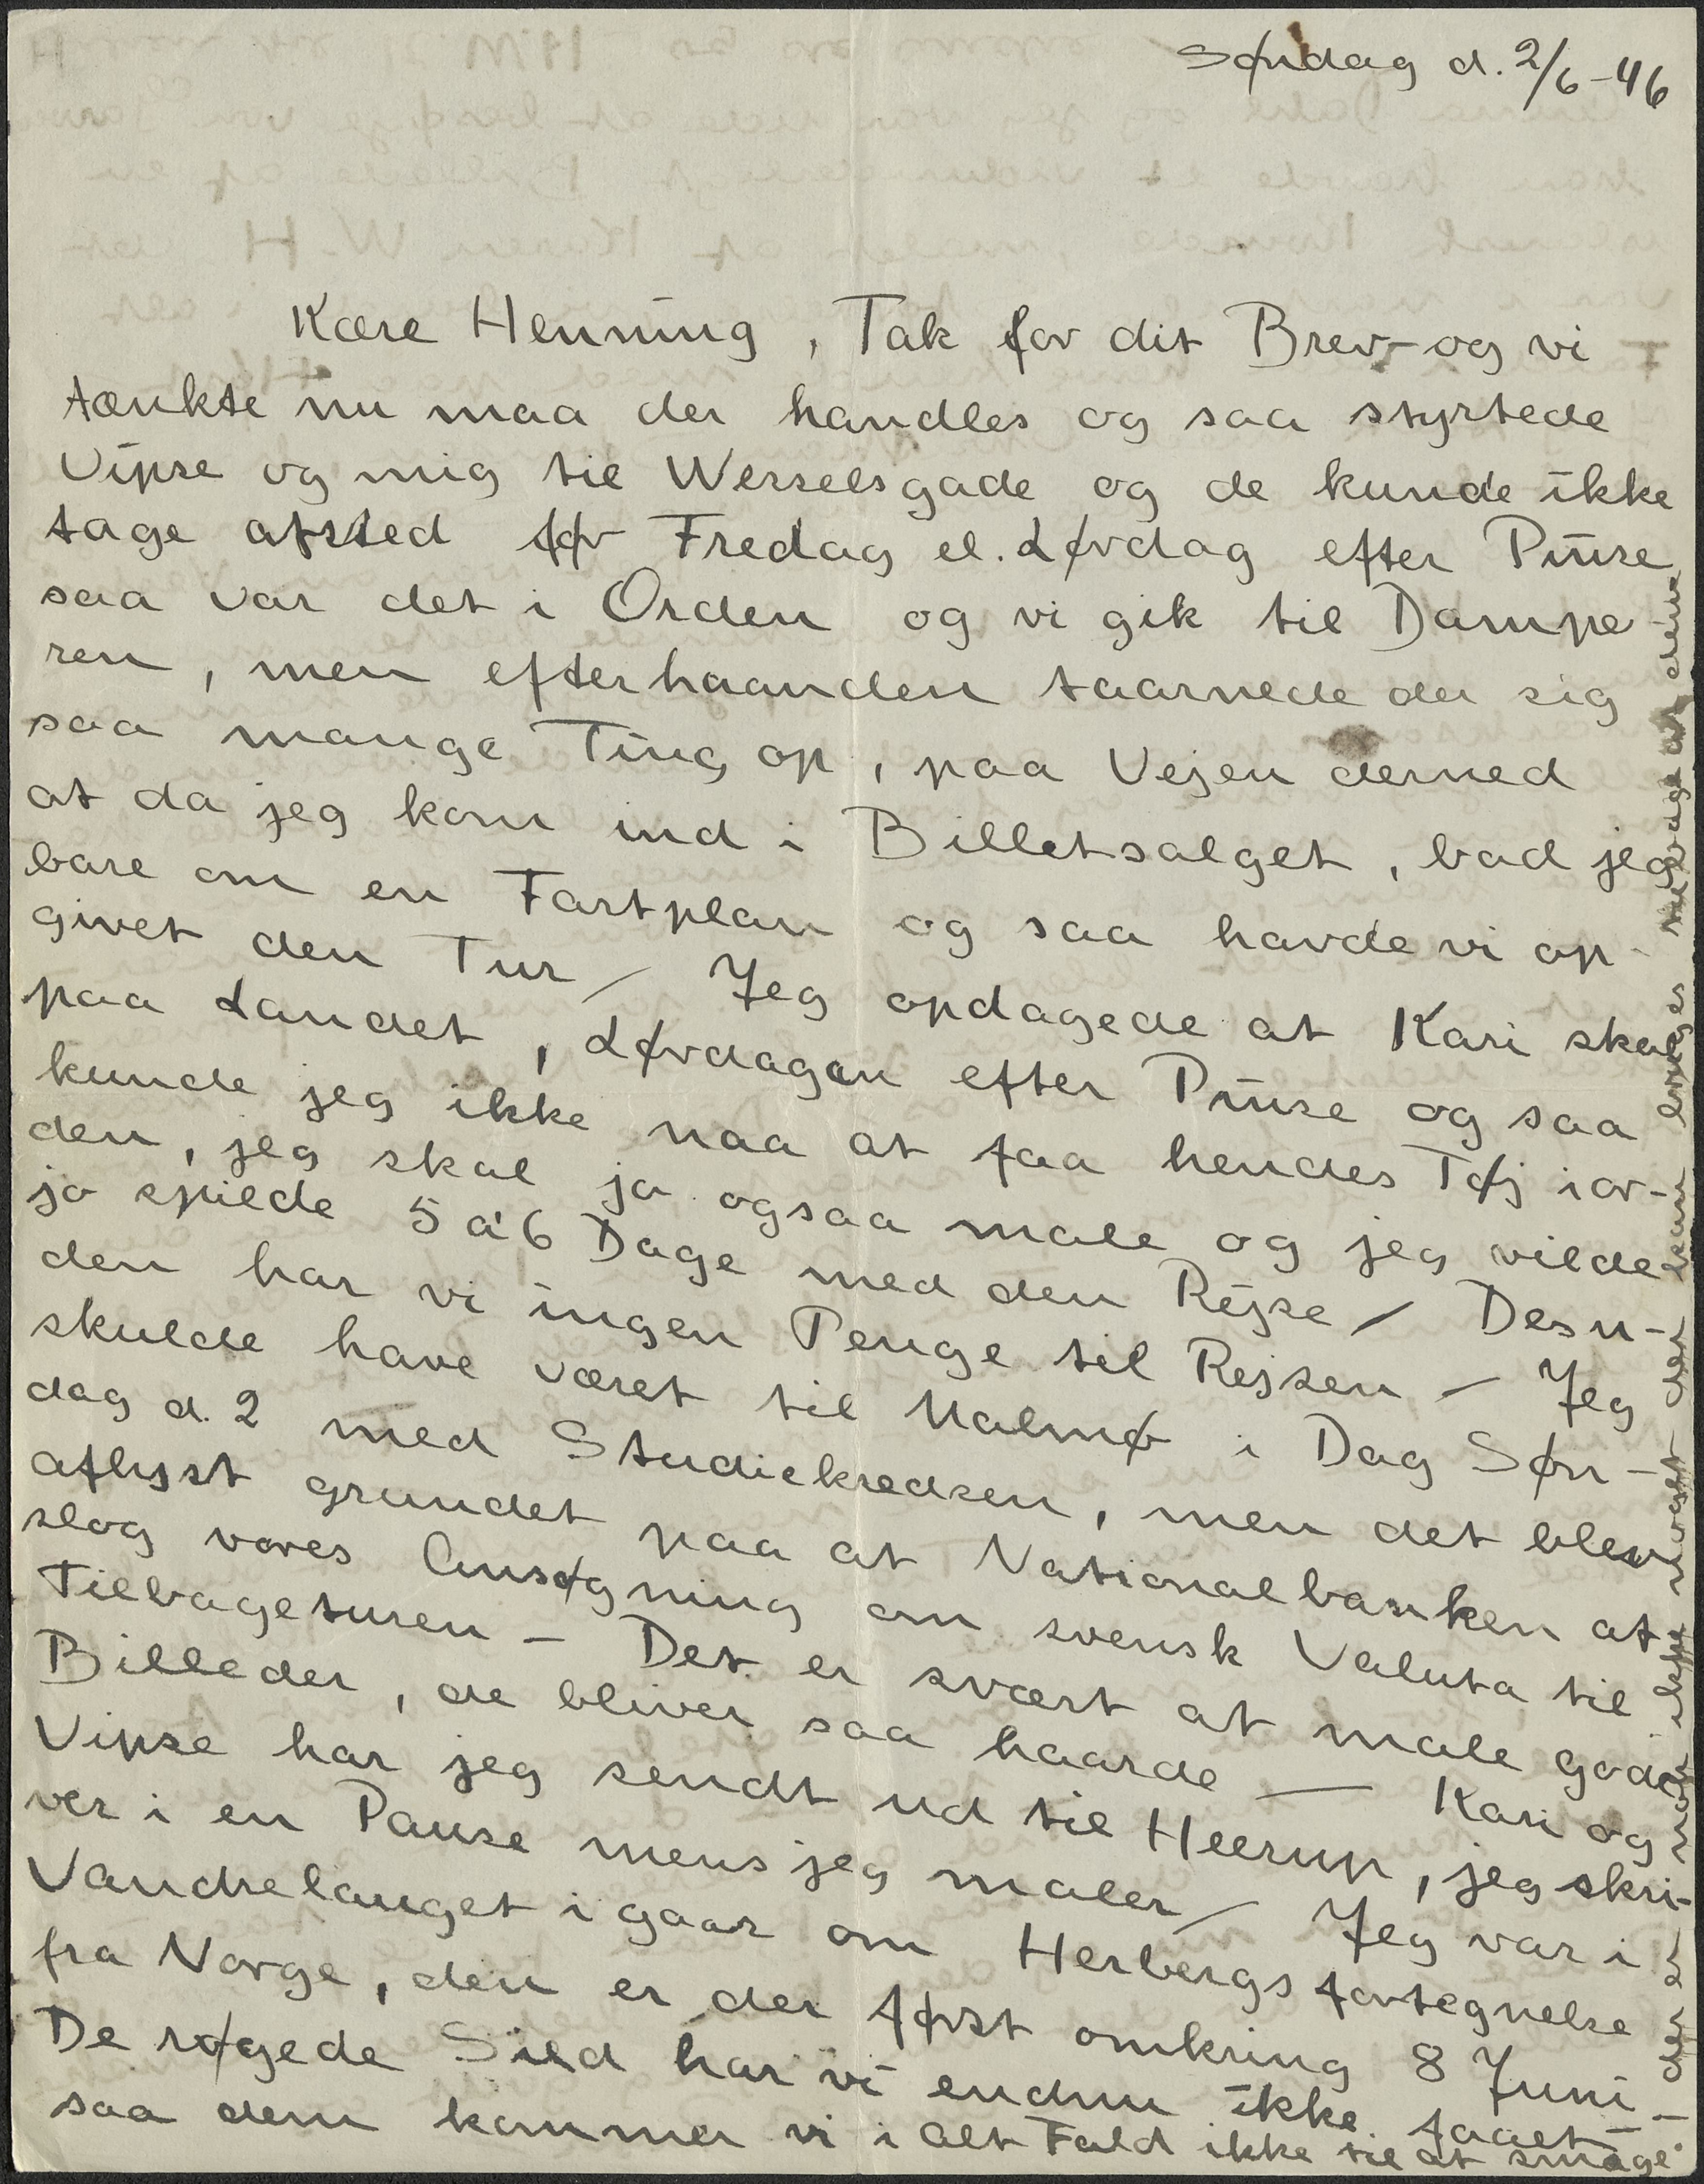 Søndag d. 2/6-46
Kære Henning, Tak for dit Brev- og vi
tænkte nu maa der handles og saa styrtede
Vipse og mig til Wesselsgade og de kunde ikke
tage afsted før Fredag el. Lørdag efter Pinse
saa var det i Orden og vi gik til Dampe
ren, men efterhaanden taarnede der sig
saa mange Ting op, paa Vejen derned
at da jeg kom ind i Billetsalget, bad jeg
bare om en Fartplan og saa havde vi op-
givet den Tur / Jeg opdagede at Kari skal
paa Landet, Lørdagen efter Pinse og saa
kunde jeg ikke naa at faa hendes Tøj ior-
den, jeg skal jo ogsaa male og jeg vilde
jo spilde 5 a 6 Dage med den Rejse / Desu-
den har vi ingen Penge til Rejsen – Jeg
skulde have været til Malmø i Dag Søn-
dag d. 2 med Studiekredsen, men det blev
aflyst grundet paa at Nationalbanken af-
slog vores Ansøgning om svensk Valuta til
Tilbageturen – Det er svært at male gode
Billeder, de bliver saa haarde — Kari og
Vipse har jeg sendt ud til Heerup, jeg skri-
ver i en Pause mens jeg maler / Jeg var i
Vandrelauget igaar om Herbergsfortegnelse
fra Norge, den er der først omkring 8 Juni –
De røgede Sild har vi endnu ikke faaet –
saa dem kommer vi i alt Fald ikke til at smage.
der er nok ikke noget der kan bruges tilbage af dem